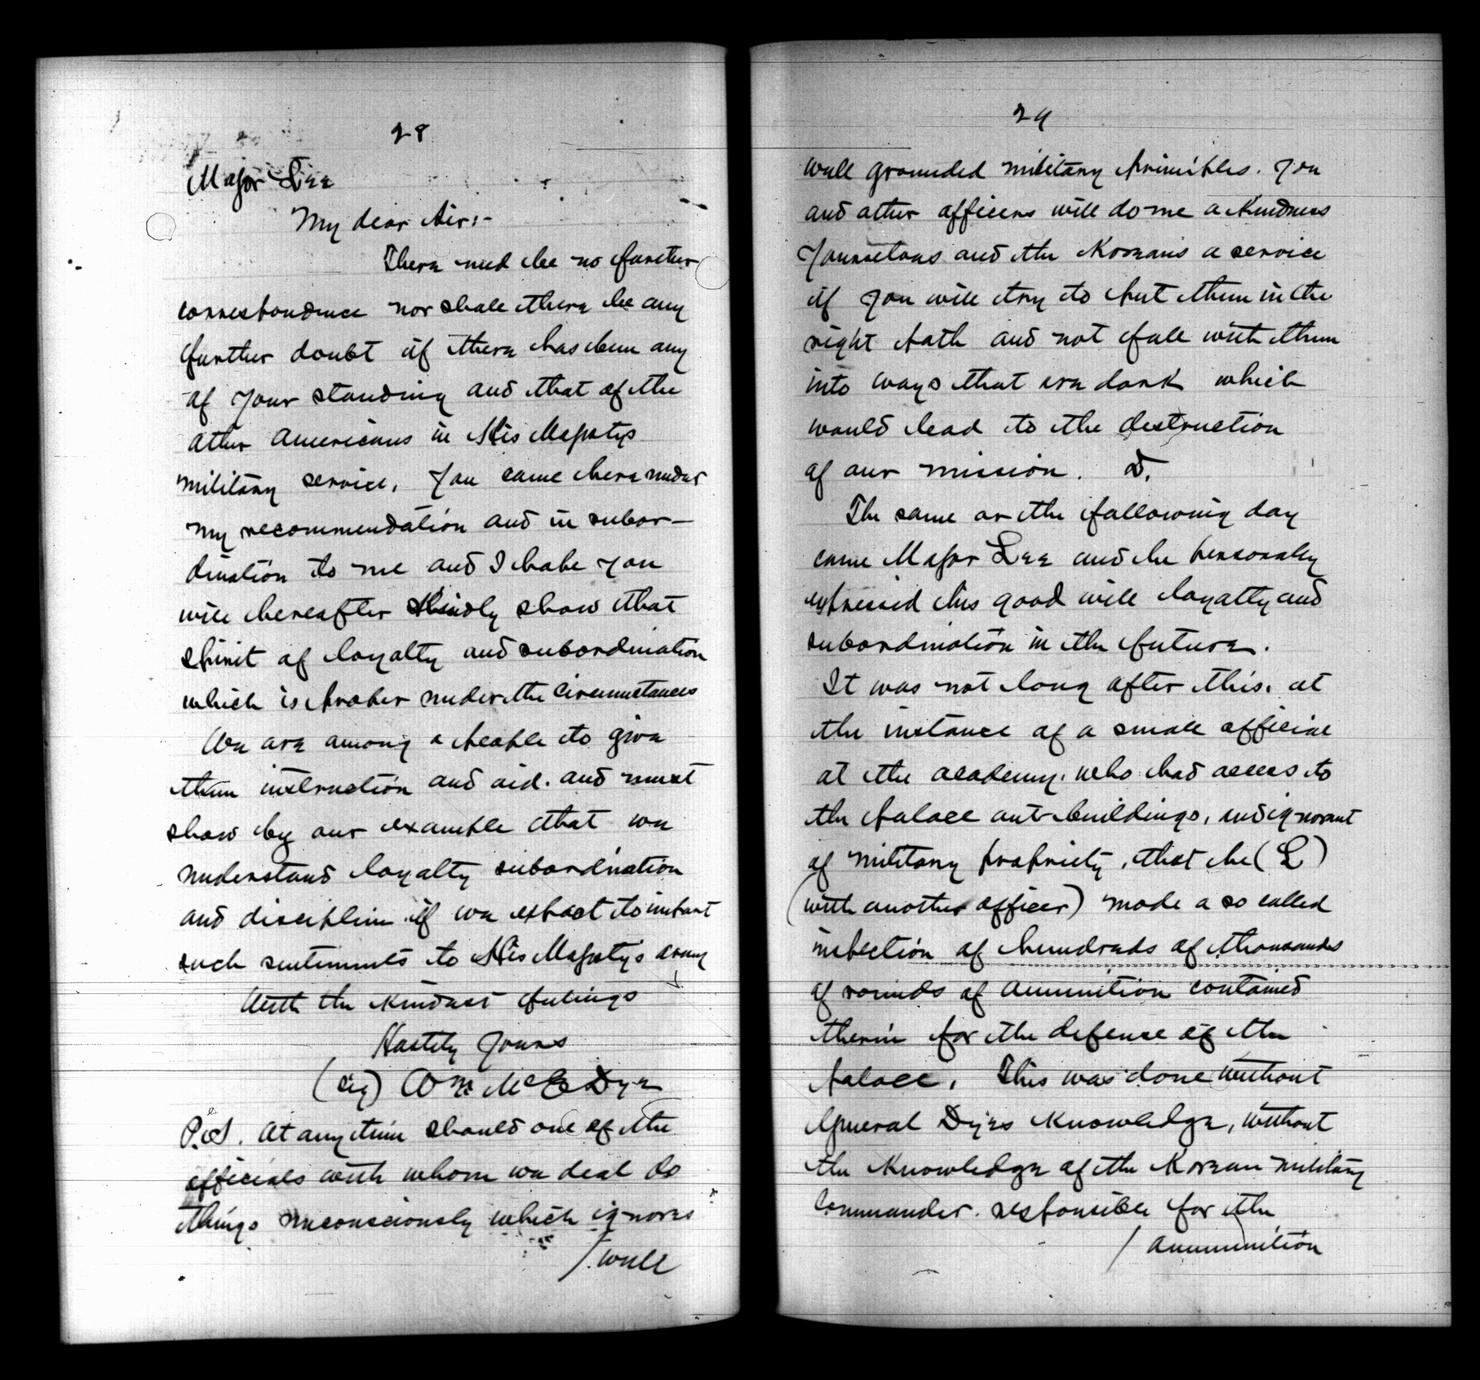 28
Major Lee
My dear Sir:-
There need be no further
correspondence nor shall there be any
further doubt if there has been any
of your standing and that of the
other Americans in His Majestys
military service. You came here under
my recommendation and in subor-
dination to me and I hope you
will hereafter kindly show that
spirit of loyalty and subordination
which is proper under the circumstances
We are among a people to give
them instruction and aid. and must
show by our example that we
understand loyalty subordination
and discipline if we expect to impart
such sentiments to His Majestys army
With the kindest feelings
Hastily Yours
(sig) Wm McE Dye
P.S. At any time should one of the
officials with whom we deal do
things unconsciously which ignores
/. well
29
well grounded military principles. You
and other officers will do me a kindness
yourselves and the Koreans a service
if you will try to put them in the
right path and not fall with them
into ways that are dark which
would lead to the destruction
of our mission. D.
The same or the following day
came Major Lee and he personally
expressed his good will loyalty and
subordination in the future.
It was not long after this. at
the instance of a small official
at the academy. who had access to
the Palace out-buildings, and ignorant
of military propriety, that he (L)
(with another officer) made a so called
inspection of hundreds of thousands
of rounds of ammunition contained
therein for the defense of the
Palace. This was done without
General Dyes knowledge, without
the knowledge of the Korean military
Commander. responsible for the
/ ammunition